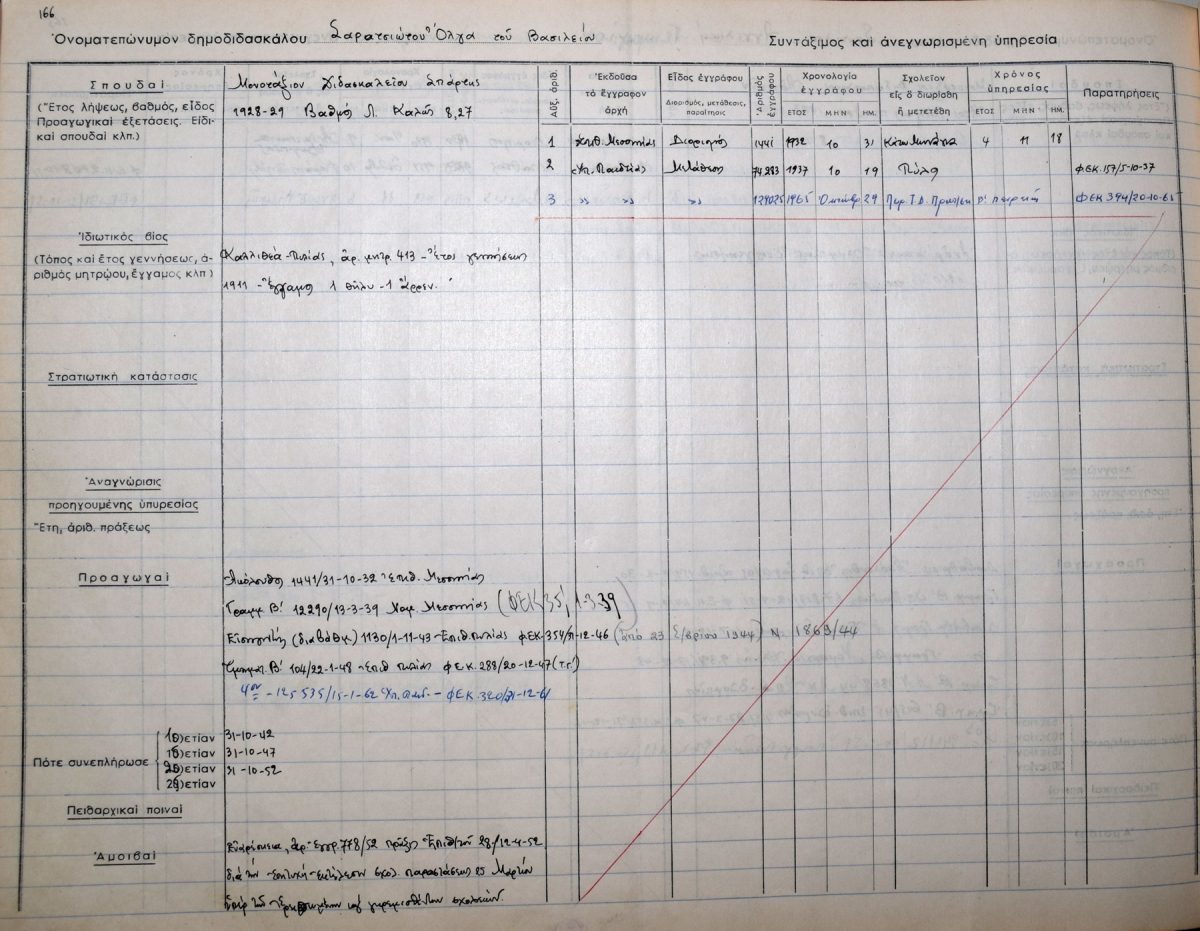 166
Ὀνοματεπώνυμον δημοδιδασκάλου Σαρατσιώτου Ὄλγα τοῦ Βασιλείου
Συντάξιμος καὶ ἀνεγνωρισμένη ὑπηρεσία
Σπουδαὶ
(Ἔτος λήψεως, βαθμός, εἶδος
Προαγωγικαὶ ἐξετάσεις. Εἰδι-
καὶ σπουδαὶ κλπ.)
Μονοτάξιον Διδασκαλεῖον Σπάρτης
1928-29 Βαθμὸς Λ. Καλῶς 8,27
Αὔξ. ἀριθ.
Ἐκδοῦσα
τὸ ἔγγραφον
ἀρχὴ
Εἶδος ἐγγράφου
Διορισμός, μετάθεσις,
παραίτησις
Ἀριθμὸς
ἐγγράφου
Χρονολογία
ἐγγράφου
ΕΤΟΣ ΜΗΝ ΗΜ.
Σχολεῖον
εἰς ὃ διωρίσθη
ἢ μετετέθη
Χρόνος
ὑπηρεσίας
ΕΤΟΣ ΜΗΝ ΗΜ.
Παρατηρήσεις
1 Ἐπιθ. Μεσσηνίας Διορισμός 1441 1932 10 31 Κάτω Μηνάγια 4 11 18
2 Ὑπ. Παιδείας Μετάθεσις 74.283 1937 10 19 Πύλα ΦΕΚ.157/5-10-37
3 » » » 129025 1965 Ὀκτώβρ 29 ΦΕΚ 394/20-10-65
Ἰδιωτικὸς βίος
(Τόπος καὶ ἔτος γεννήσεως, ἀ-
ριθμὸς μητρῴου, ἔγγαμος κλπ)
Καλλιθέα-Πυλίας, ἀρ. μητρ. 413 - Ἔτος γεννήσεως
1911 - Ἔγγαμος 1 θῆλυ - 1 ἄρρεν.
Στρατιωτικὴ κατάστασις
Ἀναγνώρισις
προηγουμένης ὑπυρεσίας
Ἔτη, ἀριθ. πράξεως
Προαγωγαὶ
Ἀκόλουθος 1441/31-10-32 Ἐπιθ. Μεσσηνίας
Γραμμ Β! 12290/13-3-39 Νομ. Μεσσηνίας (ΦΕΚ 35, 1-3-39)
Εἰσηγητὴς (διαβάθμ) 1130/1-11-43 Ἐπιθ. Πυλίας ΦΕΚ.354/31-12-46 (ἀπὸ 23 1944) Ν. 1869/44
Τμηματ. Β! 104/22-1-48 Ἐπιθ Πυλίας ΦΕΚ.288/20-12-47 (τ.γ.)
4ον - 125535/15-1-62 Ὑπ. Παιδ. - ΦΕΚ.320/21-12-61
Πότε συνεπλήρωσε
10)ετίαν 31-10-42
15)ετίαν 31-10-47
20)ετίαν 31-10-52
25)ετίαν
Πειθαρχικαὶ ποιναὶ
Ἀμοιβαὶ
Εὐαρέσκεια, ἀρ. ἐγγρ. 778/52 πρᾶξις Ἐπιθ/τοῦ 28/12-4-52
διὰ τὴν ἐπιτυχῆ ἐκτέλεσιν σχολ. παραστάσεως 25 Μαρτίου
ὑπὲρ τῶν σχολείων.